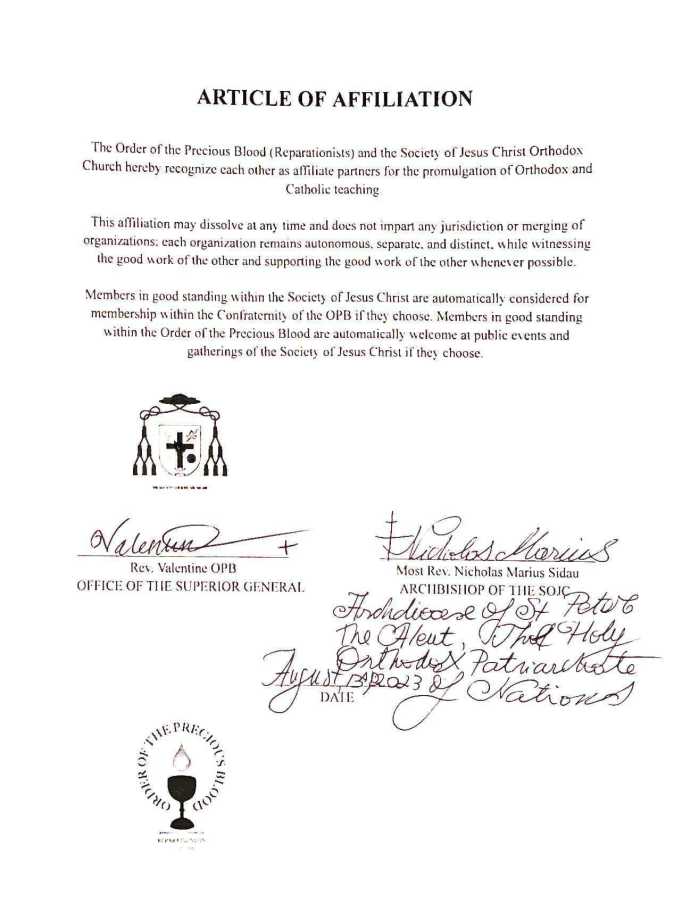 ARTICLE OF AFFILIATION
The Order of the Precious Blood (Reparationists) and the Society of Jesus Christ Orthodox
Church hereby recognize each other as affiliate partners for the promulgation of Orthodox and
Catholic teaching
This affiliation may dissolve at any time and does not impart any jurisdiction or merging of
organizations; each organization remains autonomous, separate, and distinct, while witnessing
the good work of the other and supporting the good work of the other whenever possible.
Members in good standing within the Society of Jesus Christ are automatically considered for
membership within the Confraternity of the OPB if they choose. Members in good standing
within the Order of the Precious Blood are automatically welcome at public events and
gatherings of the Society of Jesus Christ if they choose.
Valentine +
Rev. Valentine OPB
OFFICE OF THE SUPERIOR GENERAL
Nicholas Marius
Most Rev. Nicholas Marius Sidau
ARCHBISHOP OF THE SOJC
Archdiocese Of St Peter
The Aleut, Holy
Orthodox Patriarchate
of Nations
August 2023
DATE
ORDER OF THE PRECIOUS BLOOD